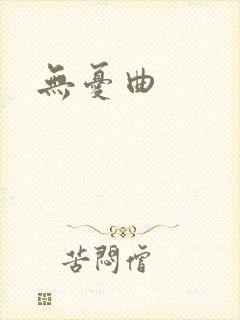 無憂曲
苦悶僧